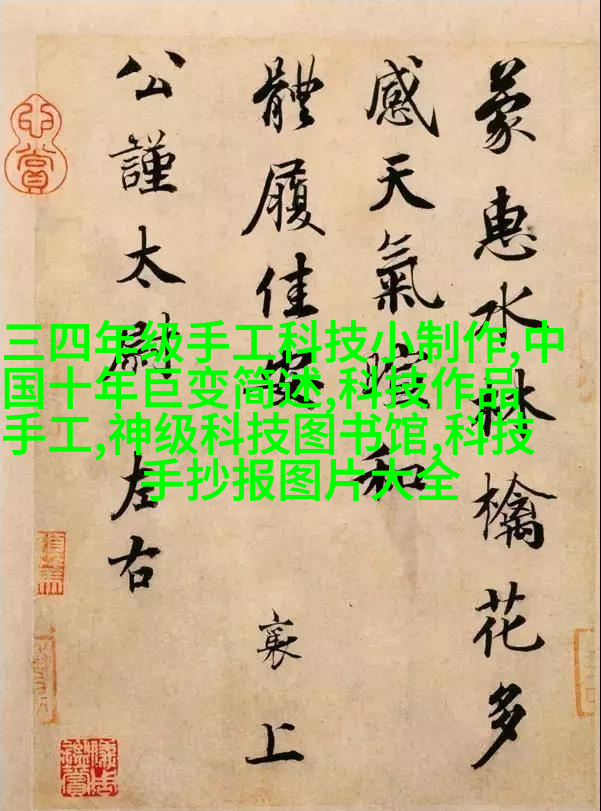 蒙惠水林檎花多
感天氣暄和
體履佳安
襄上
公謹太尉左右
三四年级手工科技小制作,中
国十年巨变简述,科技作品
手工,神级科技图书馆,科技
手抄报图片大全